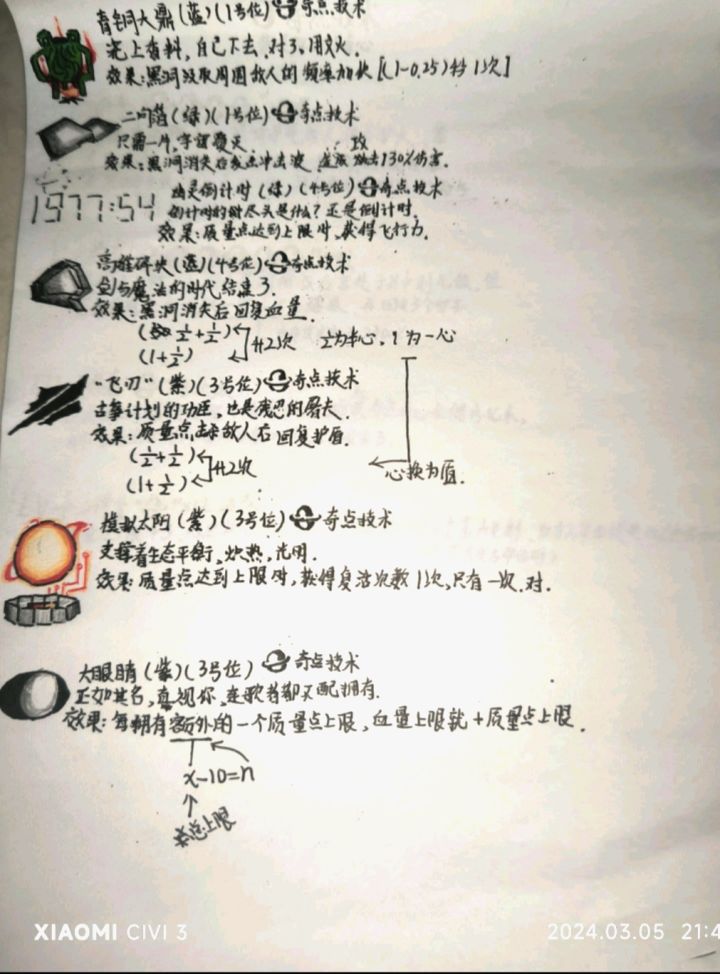 青铜大鼎(蓝)(1号位) 奇点技术
浇上香料,自己下去,对了,用文火.
效果:黑洞汲取周围敌人的频率加快[(1-0.25)秒1次]
二向箔(绿)(1号位) 奇点技术
只需一片,宇宙
效果:黑洞消失后发出冲击波 造成 130%伤害.
1977:54
幽灵倒计时(绿)(4号位) 奇点技术
倒计时的尽头是什么?还是倒计时.
效果:质量点达到上限时,获得飞行力.
高维碎块(蓝)(4号位) 奇点技术
剑与魔法的时代结束了.
效果:黑洞消失后回复血量.
(½+½)
(1+½)
共2次
½为半心,1为一心
"飞刃"(紫)(3号位) 奇点技术
古筝计划的功臣,也是残忍的屠夫.
效果:质量点击杀敌人后回复护盾.
(½+½)
(1+½)
共2次
心换为盾.
模拟太阳(紫)(3号位) 奇点技术
支撑着生态平衡,炽热,光明.
效果:质量点达到上限时,获得复活次数1次,只有一次.对.
大眼睛(紫)(3号位) 奇点技术
正如其名,直视你,连歌者都又配拥有.
效果:每拥有额外的一个质量点上限,血量上限就+质量点上限.
x-10=n
总上限
XIAOMI CIVI 3
2024.03.05 21:4